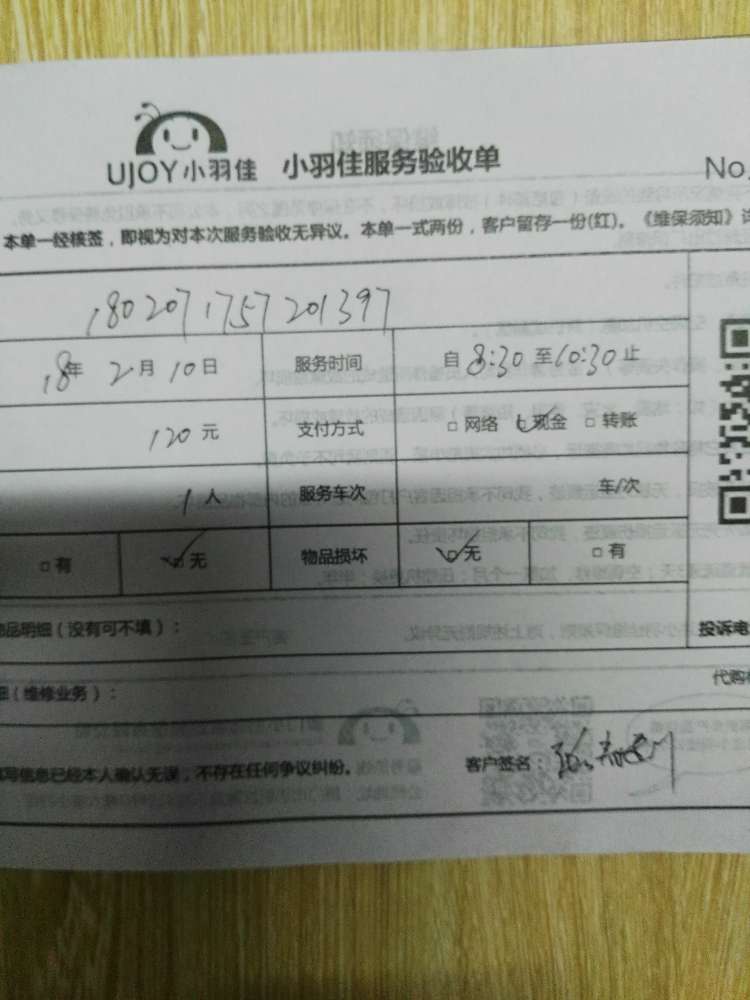 UJOY小羽佳 小羽佳服务验收单 No.
本单一经核签，即视为对本次服务验收无异议。本单一式两份，客户留存一份(红)。《维保须知》详
1802071757201397
18年 2月10日 服务时间 自8:30至10:30止
120元 支付方式 □网络 □现金 □转账
1人 服务车次 车/次
□有 □无 物品损坏 □无 □有
品明细（没有可不填）： 投诉电
细（维修业务）： 代购
写信息已经本人确认无误，不存在任何争议纠纷。 客户签名：